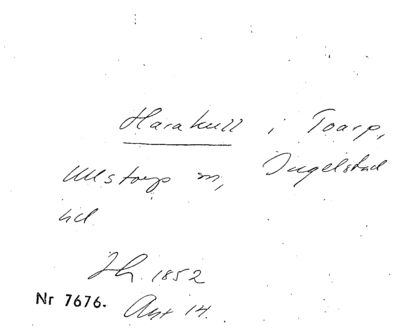 Harakull i Toarp,
Ullstorp sn, Ingelstad
hd
Jh. 1852
Nr 7676. Apt 14.